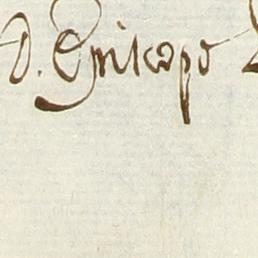 D. Episcopo